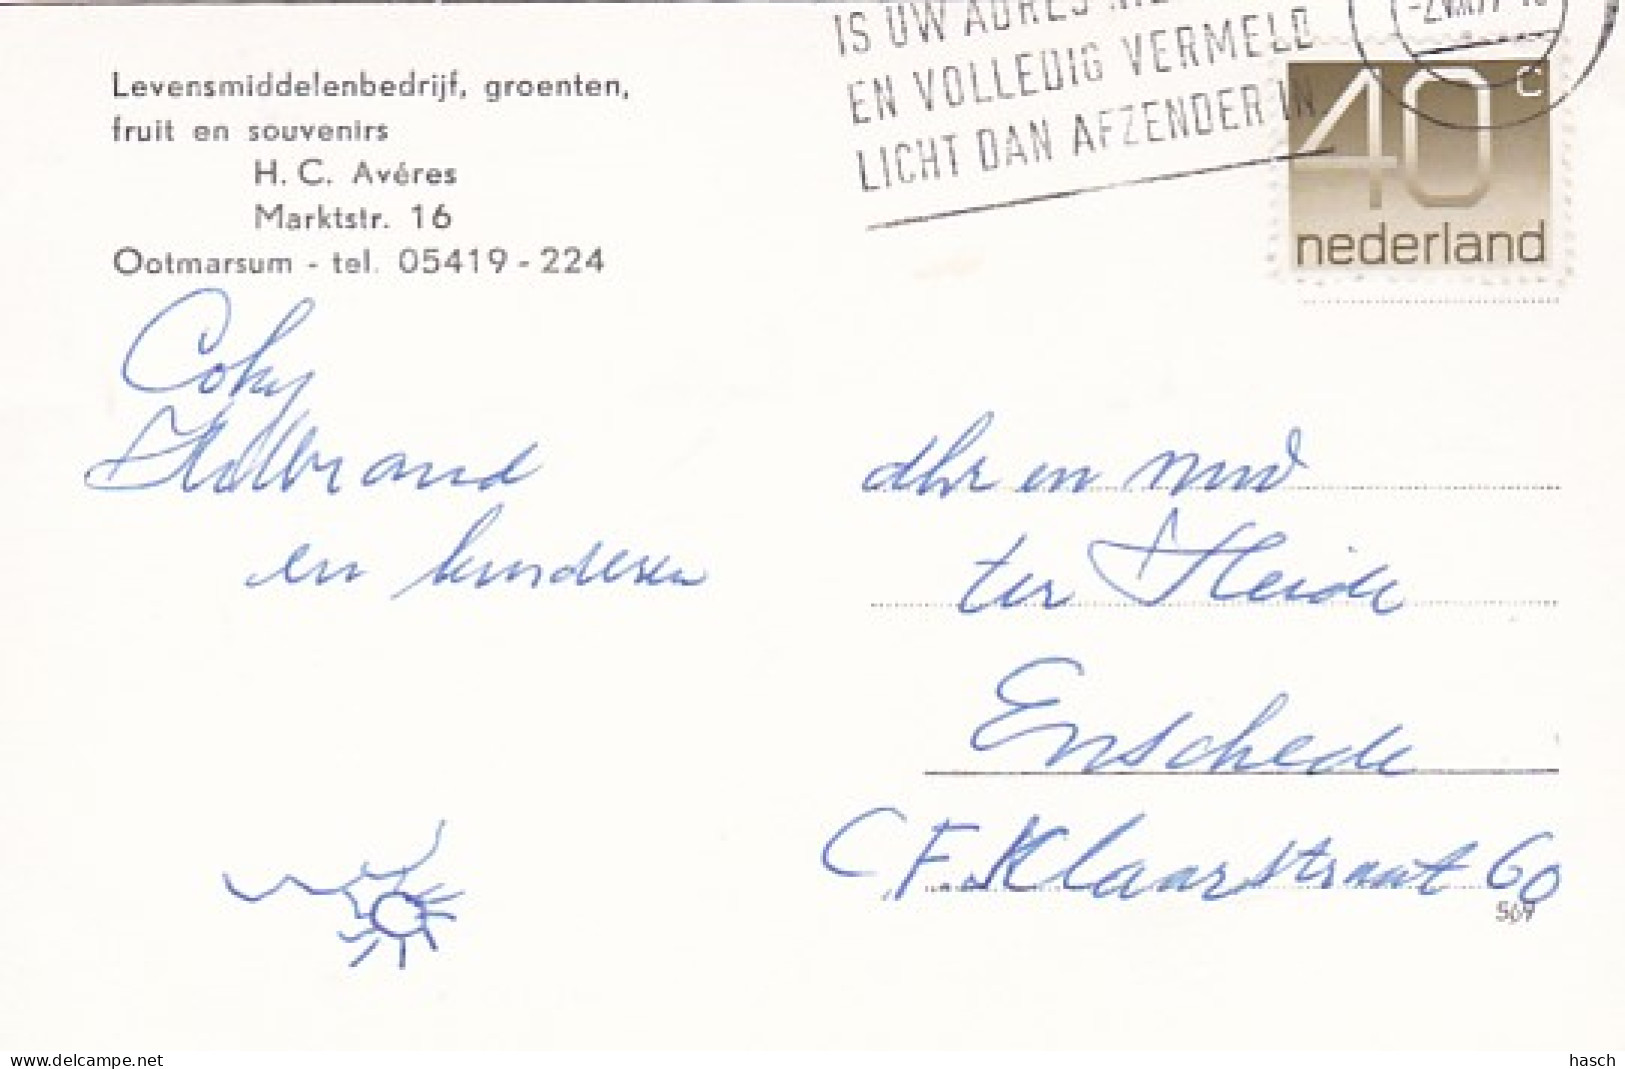 Levensmiddelenbedrijf, groenten,
fruit en souvenirs
H. C. Avéres
Marktstr. 16
Ootmarsum - tel. 05419 - 224
Coky
Hilbrand
en kinderen
IS UW ADRES
EN VOLLEDIG VERMELD
LICHT DAN AFZENDER IN
40 c
nederland
dhr en mw
ter Heide
Enschede
C F. Klaarstraat 60
569
www.delcampe.net
hasch